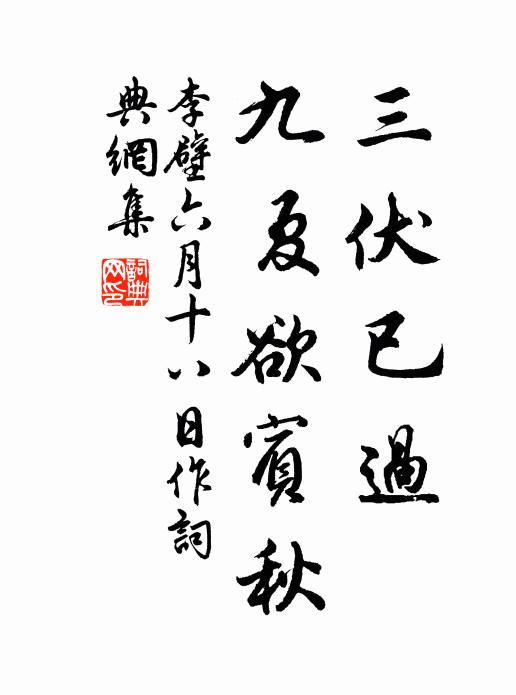 三伏已過
九夏欲賓秋
李壁六月十八日作詞
典網集
詞典
网印